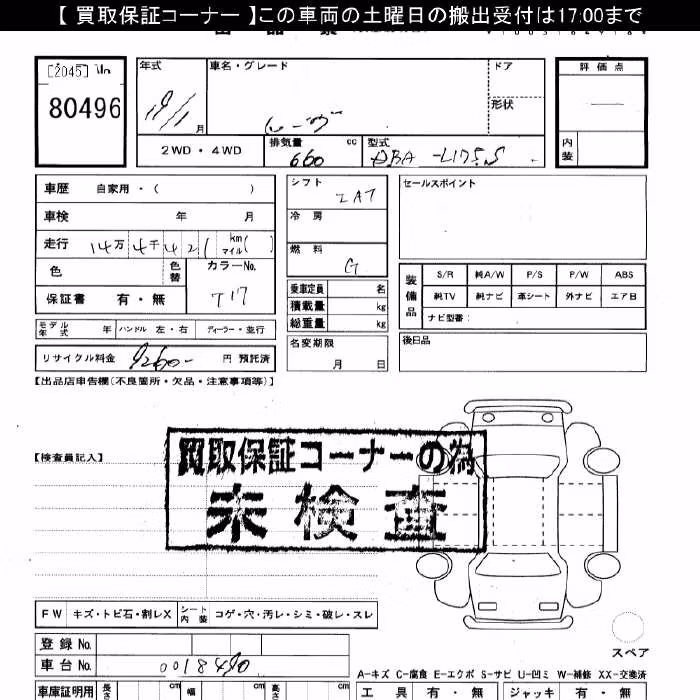 【 買取保証コーナー 】この車両の土曜日の搬出受付は17:00まで
[2045]
80496
年式
月
車名・グレード
ドア
形状
評価点
内装
2WD・4WD
排気量 660 cc
型式 DBA-L175S
車歴 自家用・( )
車検 年 月
走行 14万4千421 km マイル( )
色 色替
カラーNo. T17
保証書 有・無
シフト IAT
冷房
燃料 G
乗車定員 名
積載量 kg
総重量 kg
セールスポイント
装備品
S/R 純A/W P/S P/W ABS
純TV 純ナビ 革シート 外ナビ エアB
ナビ型番:
モデル年式 年 ハンドル 左・右 ディーラー・並行
名変期限 月 日
後日品
リサイクル料金 9260- 円 預託済
【出品店申告欄(不良箇所・欠品・注意事項等)】
買取保証コーナーの為
未検査
【検査員記入】
FW キズ・トビ石・割レX シート内装 コゲ・穴・汚レ・シミ・破レ・スレ
スペア
登録No.
車台No. 0018490
A-キズ C-腐食 E-エクボ S-サビ U-凹ミ W-補修 XX-交換済
車庫証明用 長さ cm 幅 cm 高さ cm
工具 有・無 ジャッキ 有・無